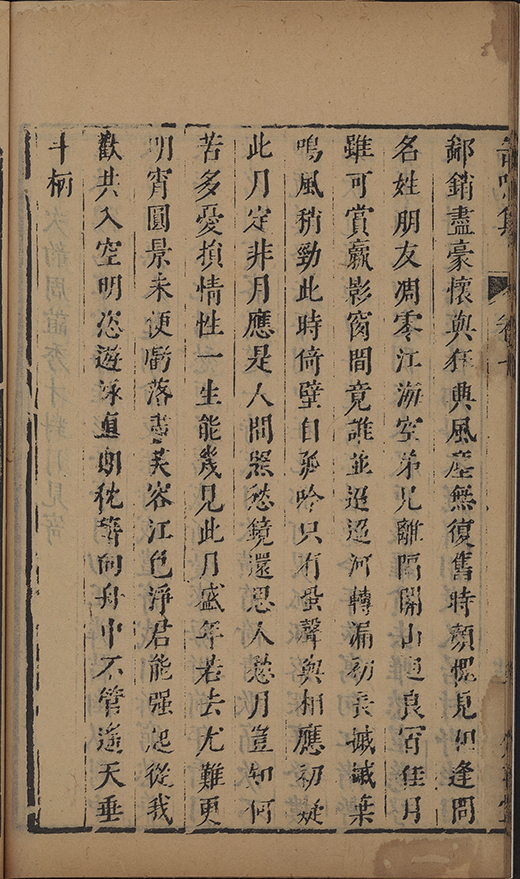 吟集 卷
鄙銷盡豪懷與狂興風塵無復舊時顏愧見相逢問
名姓朋友凋零江海空弟兄離隔關山逈良宵佳月
雖可賞羸影窗間竟誰並迢迢河轉漏初長摵摵葉
鳴風稍勁此時倚壁自孤吟只有蛩聲與相應初疑
此月定非月應是人間照愁鏡還思人愁月豈知何
苦多憂損情性一生能幾見此月盛年若去尤難更
明宵圓景未便虧落盡芙容江色淨君能强起從我
歡共入空明恣遊泳直朝枕向舟中不管遙天垂
斗柄